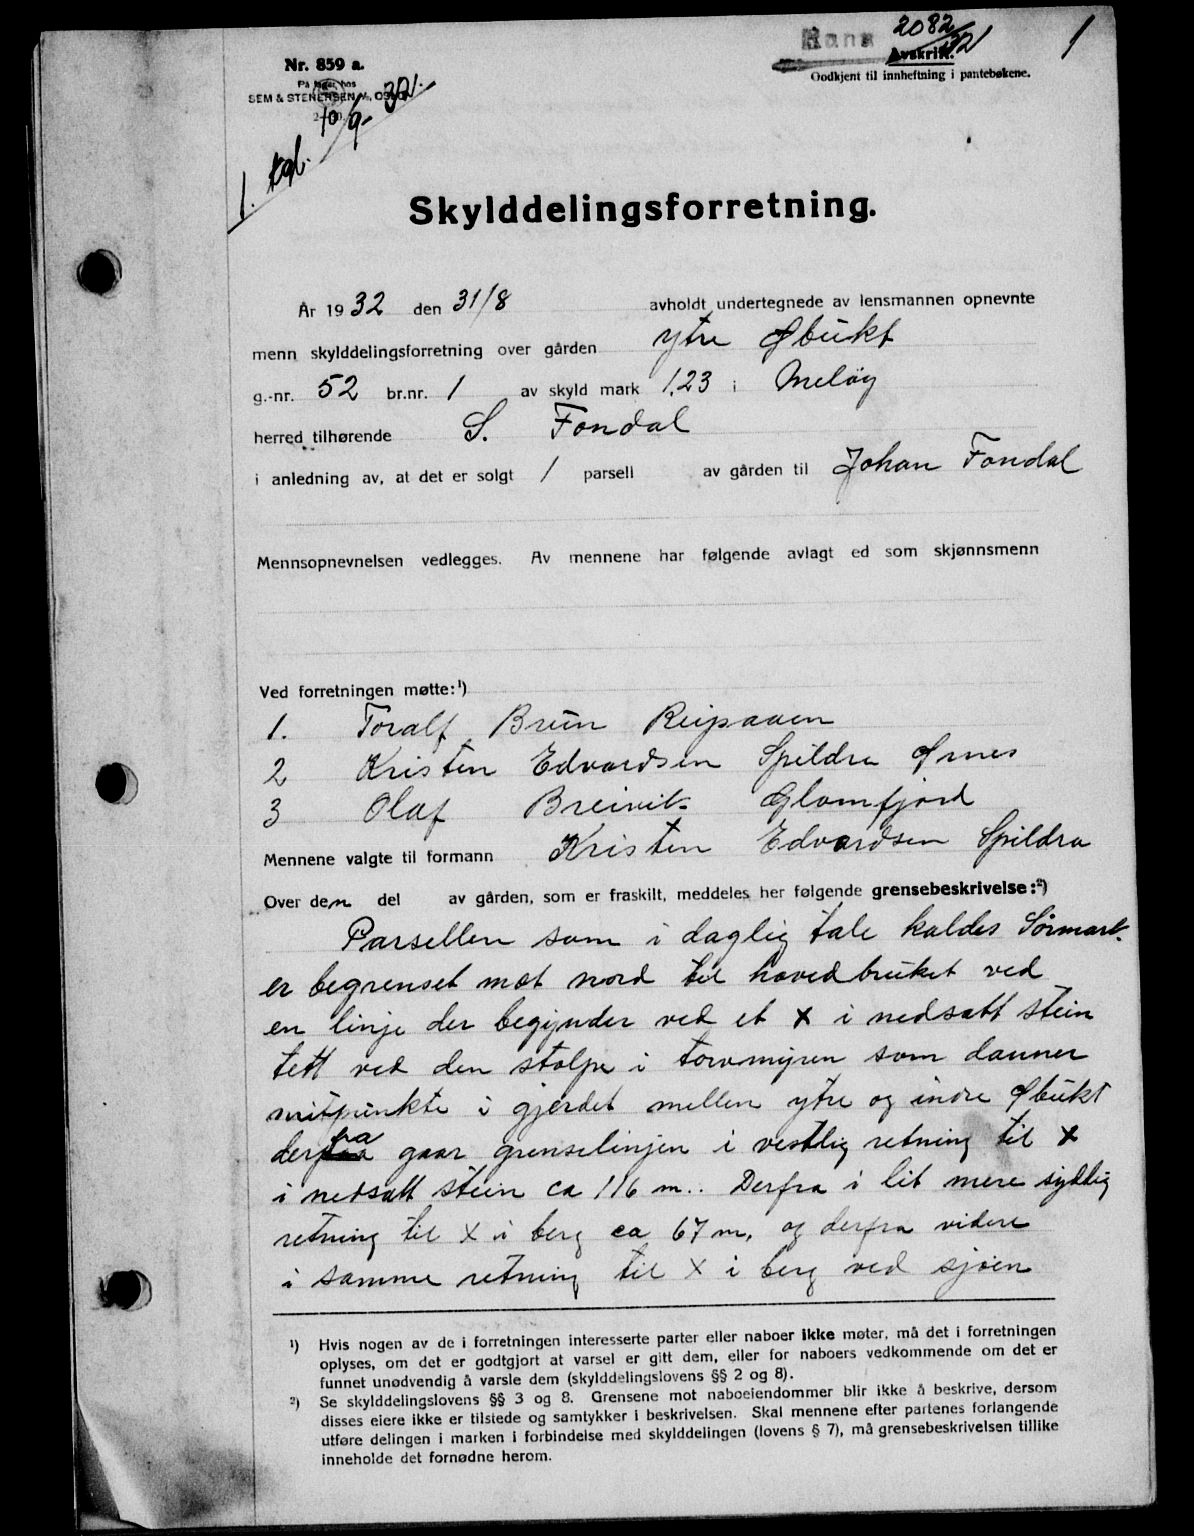 Rana 2082
Avskrift.
Godkjent til innheftning i pantebøkene.
1
Nr. 859 a.
På lager hos
SEM & STENERSEN A/S, OSLO
10/9- 32.
1. tgl.
Skylddelingsforretning.
År 1932 den 31/8 avholdt undertegnede av lensmannen opnevnte
menn skylddelingsforretning over gården ytre Øbukt
g.-nr. 52 br.nr. 1 av skyld mark 1,23 i Meløy
herred tilhørende S. Fondal
i anledning av, at det er solgt 1 parsell av gården til Johan Fondal
Mennsopnevnelsen vedlegges. Av mennene har følgende avlagt ed som skjønnsmenn
Ved forretningen møtte:¹)
1. Toralf Brun Reipaaen
2 Kristen Edvardsen Spildra Ørnes
3 Olaf Breivik Glomfjord
Mennene valgte til formann Kristen Edvardsen Spildra
Over den del av gården, som er fraskilt, meddeles her følgende grensebeskrivelse:²)
Parsellen som i daglig tale kaldes Sörmark.
er begrenset mot nord til hovedbruket ved
en linje der begynder ved et x i nedsatt stein
tett ved den stolpe i torvmyren som danner
mitpunkte i gjerdet mellem ytre og indre Øbukt
derfra gaar grenselinjen i vestlig retning til x
i nedsatt stein ca 116 m.. Derfra i lit mere sydlig
retning til x i berg ca 67 m, og derfra videre
i samme retning til x i berg ved sjöen
¹) Hvis nogen av de i forretningen interesserte parter eller naboer ikke møter, må det i forretningen
oplyses, om det er godtgjort at varsel er gitt dem, eller for naboers vedkommende om det er
funnet unødvendig å varsle dem (skylddelingslovens §§ 2 og 8).
²) Se skylddelingslovens §§ 3 og 8. Grensene mot naboeiendommer blir ikke å beskrive, dersom
disses eiere ikke er tilstede og samtykker i beskrivelsen. Skal mennene efter partenes forlangende
utføre delingen i marken i forbindelse med skylddelingen (lovens § 7), må grensebeskrivelsen tillike
inneholde det fornødne herom.